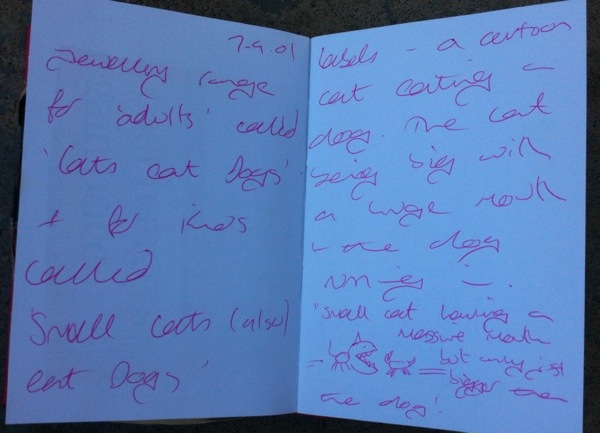 7-9.01
Jewellery range
for 'adults' called
'Cats eat Dogs'
+ for kids
called
'Small cats (also)
eat Dogs'
labels - a cartoon
cat eating a
dog. The cat
being big with
a huge mouth
& the dog
running in.
'Small cat having a
massive mouth
but only just
bigger than
the dog'.